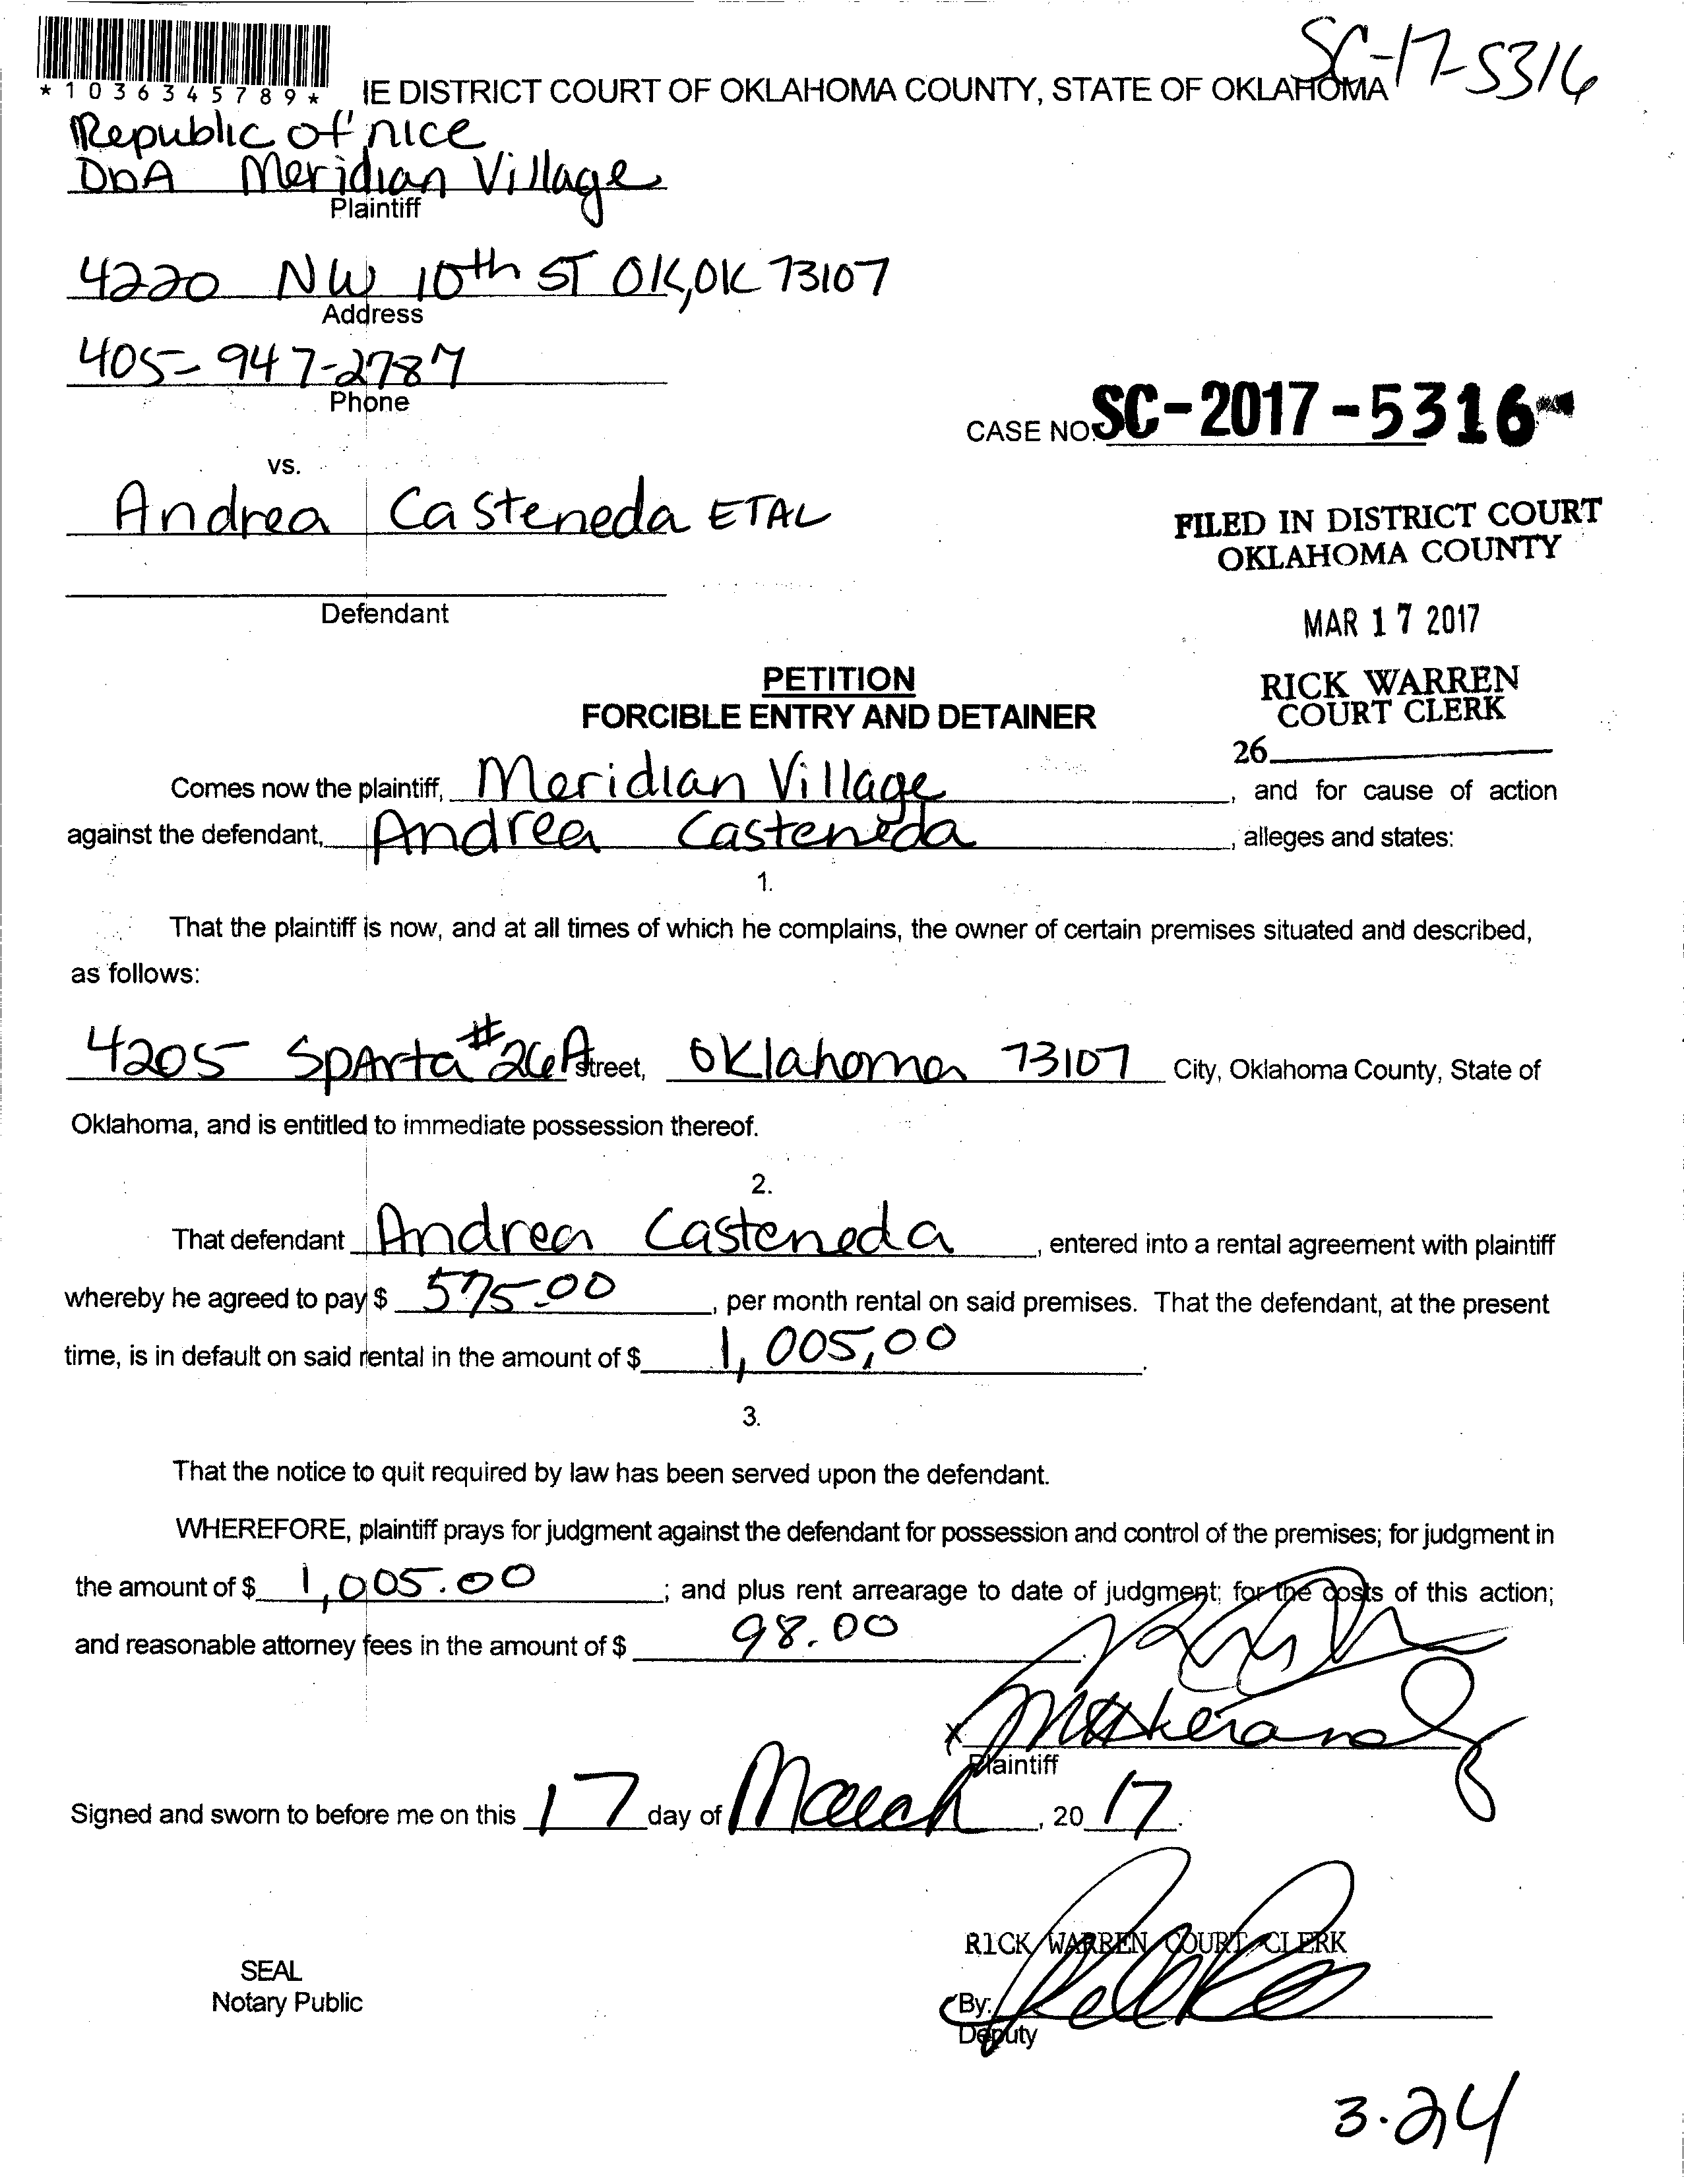 SC-17-5316
*1036345789* IE DISTRICT COURT OF OKLAHOMA COUNTY, STATE OF OKLAHOMA
Republic of nice
DbA Meridian Village
Plaintiff
4220 NW 10th ST OK, OK 73107
Address
405-947-2787
Phone
CASE NO. SC-2017-5316
vs.
Andrea Casteneda ETAL
FILED IN DISTRICT COURT
OKLAHOMA COUNTY
Defendant
MAR 17 2017
PETITION
FORCIBLE ENTRY AND DETAINER
RICK WARREN
COURT CLERK
26
Comes now the plaintiff, Meridian Village, and for cause of action
against the defendant, Andrea Casteneda, alleges and states:
1.
That the plaintiff is now, and at all times of which he complains, the owner of certain premises situated and described,
as follows:
4205 SpArta #26A Street, Oklahoma 73107 City, Oklahoma County, State of
Oklahoma, and is entitled to immediate possession thereof.
2.
That defendant Andrea Casteneda, entered into a rental agreement with plaintiff
whereby he agreed to pay $ 575.00, per month rental on said premises. That the defendant, at the present
time, is in default on said rental in the amount of $ 1,005,00.
3.
That the notice to quit required by law has been served upon the defendant.
WHEREFORE, plaintiff prays for judgment against the defendant for possession and control of the premises; for judgment in
the amount of $ 1,005.00; and plus rent arrearage to date of judgment; for the costs of this action;
and reasonable attorney fees in the amount of $ 98.00.
X
Plaintiff
Signed and sworn to before me on this 17 day of March, 20 17.
RICK WARREN COURT CLERK
SEAL
Notary Public
By:
Deputy
3.24